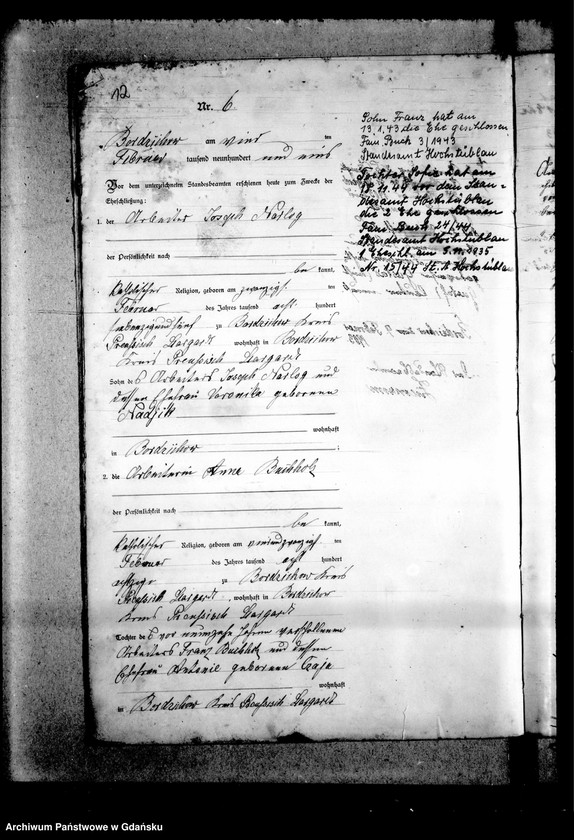 12
Nr. 6
Bordzichow am vier ten
Februar tausend neunhundert und eins
Vor dem unterzeichneten Standesbeamten erschienen heute zum Zwecke der
Eheschließung:
1. der Arbeiter Joseph Narlog
der Persönlichkeit nach
be kannt,
katholischer Religion, geboren am zwanzigs ten
Februar des Jahres tausend acht hundert
fünfundsiebzig zu Bordzichow Kreis
Preußisch Stargardt wohnhaft in Bordzichow
Kreis Preußisch Stargardt
Sohn des Arbeiters Joseph Narlog und
dessen Ehefrau Veronika geborenen
wohnhaft
in Bordzichow ;
2. die Arbeiterin Anna Buchholz
der Persönlichkeit nach
be kannt,
katholischer Religion, geboren am ten
Februar des Jahres tausend acht hundert
achtzig zu Bordzichow Kreis
Preußisch Stargardt, wohnhaft in Bordzichow
Kreis Preußisch Stargardt
Tochter des vor neunzehn Jahren verschollenen
Arbeiters Franz Buchholz und dessen
Ehefrau Antonie geborenen
wohnhaft
in Bordzichow Kreis Preußisch Stargardt
Sohn Franz hat am
13.1.43 die Ehe geschlossen
Fam Buch 3/1943
Standesamt Hochstüblau
Tochter Sofie hat am
11.44 vor dem Stan-
desamt Hochstüblau
die 2 Ehe geschlossen
Fam. Buch 24/44
Standesamt Hochstüblau
1 Eheschl. am 5.11.1935
Nr. 15/44 St. A Hochstüblau
Archiwum Państwowe w Gdańsku